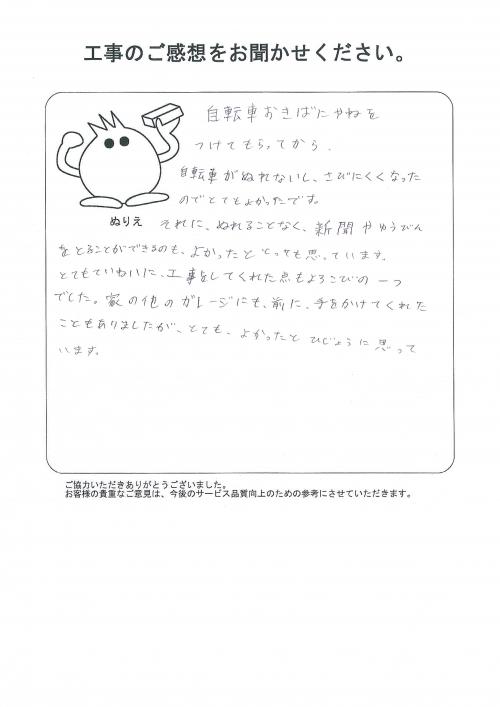 工事のご感想をお聞かせください。
自転車おきばにやねを
つけてもらってから、
自転車がぬれないし、さびにくくなった
のでとてもよかったです。
ぬりえ
それに、ぬれることなく、新聞やゆうびん
をとることができるのも、よかったととっても思っています。
とてもていねいに、工事をしてくれた点もよろこびの一つ
でした。家の他のガレージにも、前に、手をかけてくれた
こともありましたが、とても、よかったとひじょうに思って
います。
ご協力いただきありがとうございました。
お客様の貴重なご意見は、今後のサービス品質向上のための参考にさせていただきます。